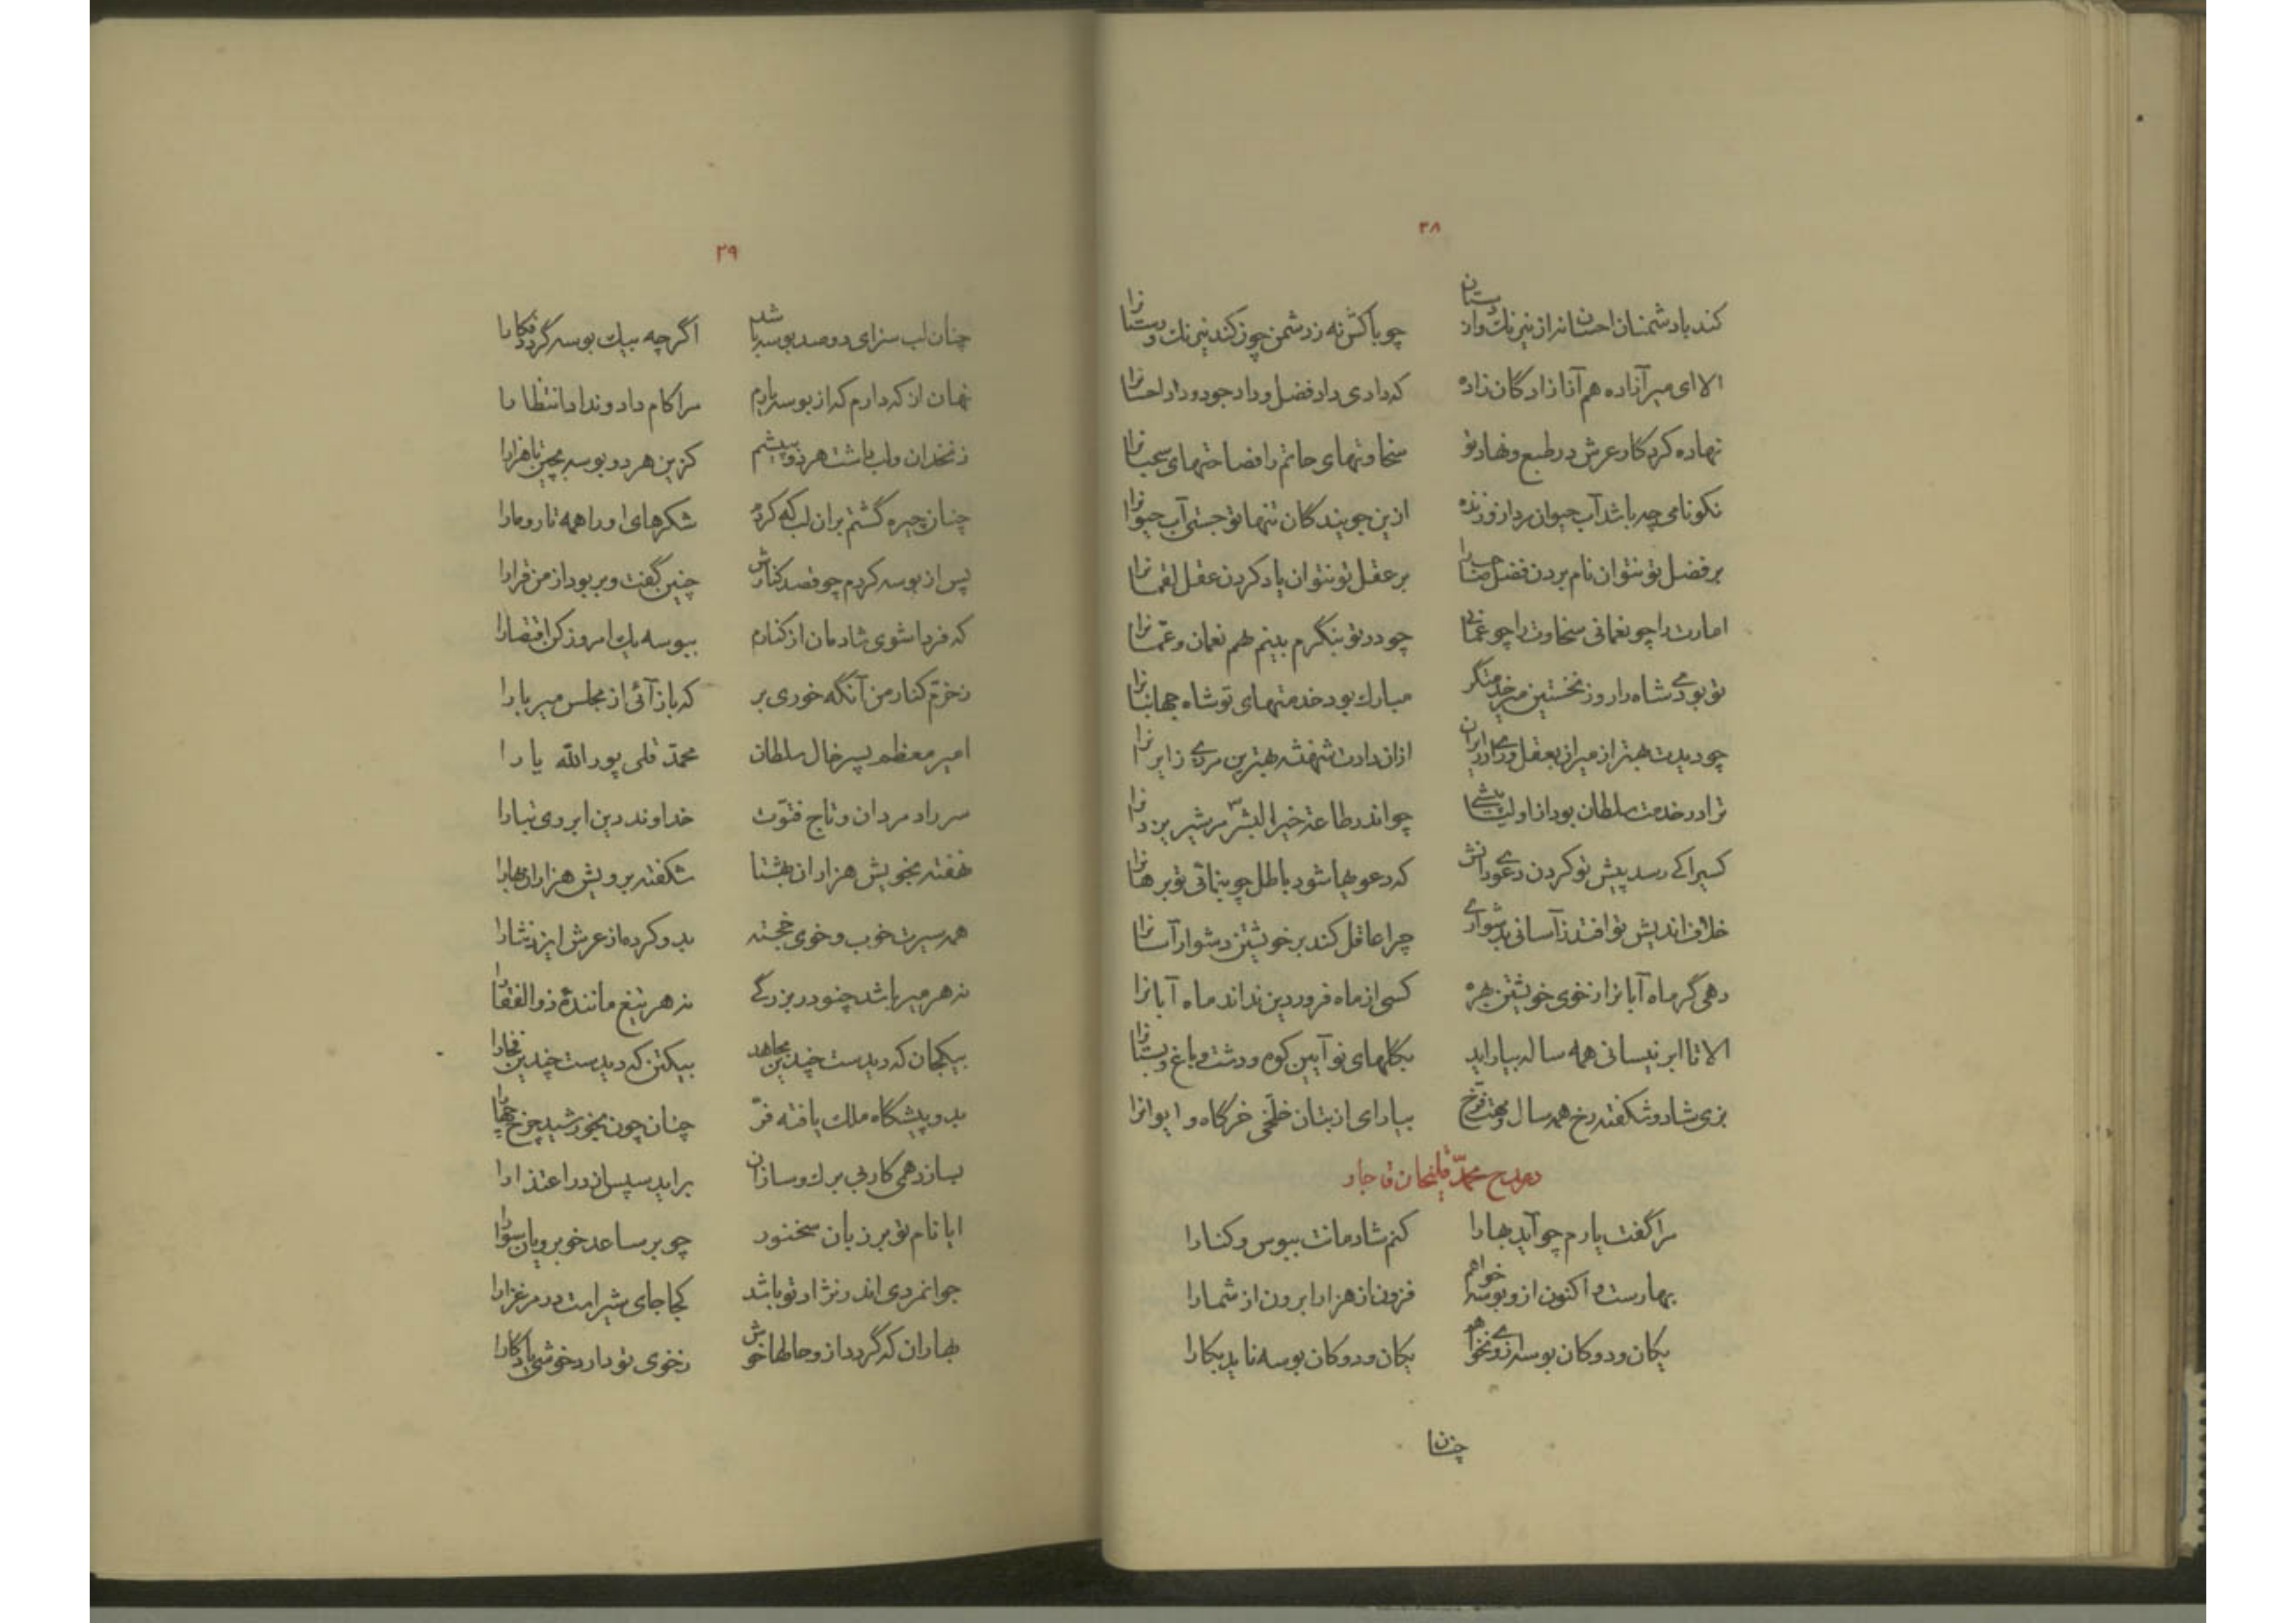 ۲۸
کند با دشمنان احسان از نیرنگ و از دستان چو با کش نه ز دشمن چون کند نیرنگ و دستانرا
الا ای میر آزاده هم آنا زادگان زاده که دادی داد فضل و داد جود و داد احسانرا
نهاده کردگار عرش در طبع و نهاد تو سخاوتهای حاتم را فصاحتهای سحبانرا
نکونامی چه باشد آب حیوان مرد ازو زنده ازین جویندگان تنها تو جستی آب حیوانرا
بر فضل تو نتوان نام بردن فضل صاحبرا بر عقل تو نتوان یاد کردن عقل لقمانرا
امارت را چو نعمانی سخاوت را چو عثمانی چو در تو بنگرم بینم هم نعمان و عثمانرا
تو بودی شاه را روز نخستین مر خدمتگر مبارک بود خدمتهای تو شاه جهانبانرا
چو دیدت بهتر از میران بعقل و رای در ایران ازان دادت شهنشه بهترین مرزی ز ایرانرا
ترا در خدمت سلطان بود از اولیت باشی چو اندر طاعة خیر البشر مر شیر یزدانرا
کسیرا کی رسد پیش تو کردن دعوی دانش که دعویها شود باطل چو بنمائی تو برهانرا
خلاف اندیش تو افتد ز آسانی بدشواری چرا عاقل کند بر خویشتن دشوار آسانرا
دهی گر ماه آبانرا ز خوی خویشتن بهره کسی از ماه فروردین نداند ماه آبانرا
الا تا ابر نیسانی همه ساله بیاراید بگلهای نو آیین کوه و دشت و باغ و بستانرا
بزی شاد و شکفته رخ همه سال و بهت فرخ بیارای از بتان خلخی خرگاه و ایوانرا
در مدح محمد قلیخان قاجار
مرا گفت یارم چو آید بهارا کنم شادمانت ببوس و کنارا
بهارست و اکنون ازو بوسه خواهم فزون از هزارا برون از شمارا
یکان و دوکان بوسه ازو نخواهم یکان و دوکان بوسه ناید بکارا
چنان
۲۹
چنان لب سزای دو صد بوسه باشد اگرچه بیک بوسه گردد فکارا
نهان از که دارم که از بوسه یارم مرا کام داد و نداد انتظارا
زنخدان و لب داشت هر دو به پیشم کزین هر دو بوسه بچین تا هزارا
چنان چیره گشتم بران لب که کردم شکرهای او را همه تار و مارا
پس از بوسه کردم چو قصد کنارش چنین گفت و بربود از من قرارا
که فردا شوی شادمان از کنارم ببوسه یک امروز کن اقتصارا
ز خرم کنار من آنگه خوری بر که باز آئی از مجلس میر بارا
امیر معظم پسر خال سلطان محمد قلی پور الله یارا
سر راد مردان و تاج فتوت خداوند دین ابروی تبارا
نهفته بخویش هزاران بهشتا شکفته برویش هزاران بهارا
همه سیرت خوب و خوی خجسته بدو کرده از عرش ایزد نثارا
نه هر میر باشد چنو در بزرگی نه هر تیغ مانندهٔ ذوالفقارا
بیکجان که دیدست چندین مجاهد بیکتن که دیدست چندین فخارا
بدو پیشگاه ملک یافته فرّ چنان چون بخورشید چرخ چهارا
بسازد همی کار بی برک و سازان براید سپس از در اعتذارا
ایا نام تو بر زبان سخنور چو بر ساعد خوبرویان سوارا
جوانمردی اندر نژاد تو باشد کجا جای شیرامت در مرغزارا
بهاران که گردد ازو حالها خوش ز خوی تو دارد خوشی یادگارا